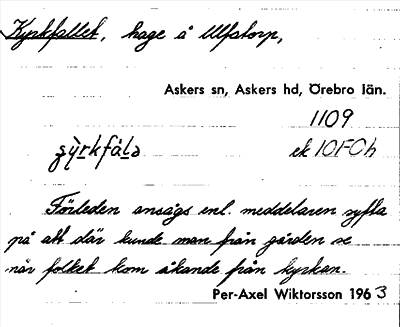 Kyrkfallet, hage å Ulfstorp,
Askers sn, Askers hd, Örebro län.
1109
ek 10F0h
Förleden ansågs enl. meddelaren syfta
på att där kunde man från gården se
när folket kom åkande från kyrkan.
Per-Axel Wiktorsson 1963